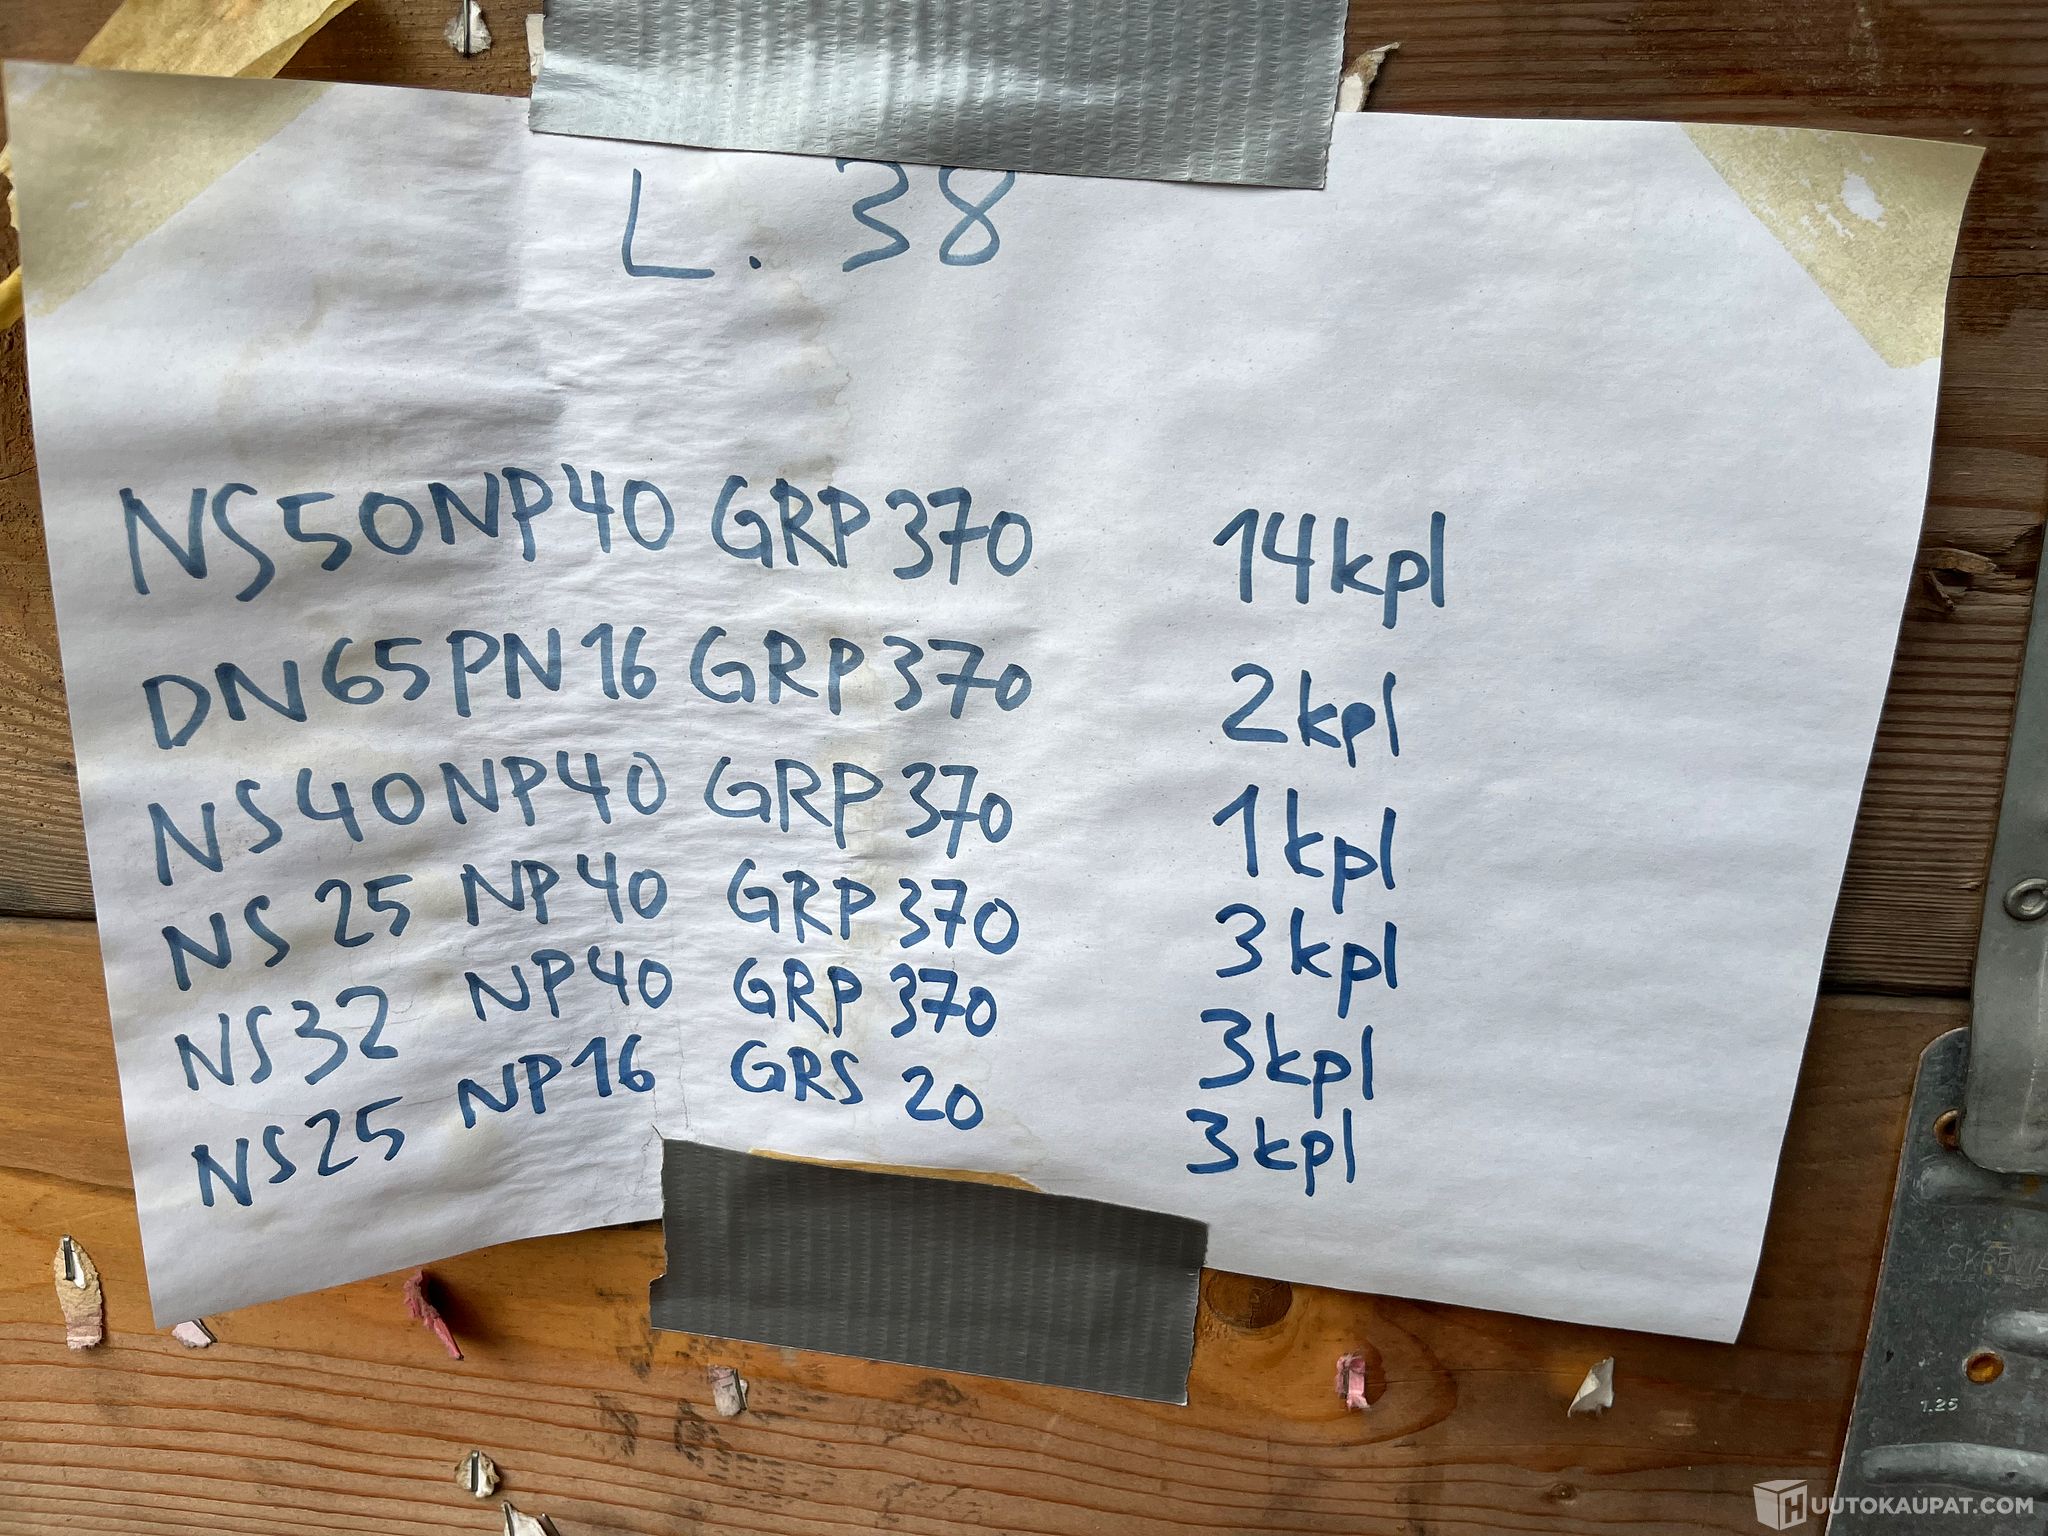 L. 38
NS50NP40 GRP370 14kpl
DN65PN16 GRP370 2kpl
NS40NP40 GRP370 1kpl
NS 25 NP40 GRP370 3kpl
NS32 NP40 GRP 370 3kpl
NS25 NP16 GRS 20 3kpl
1.25
HUUTOKAUPAT.COM